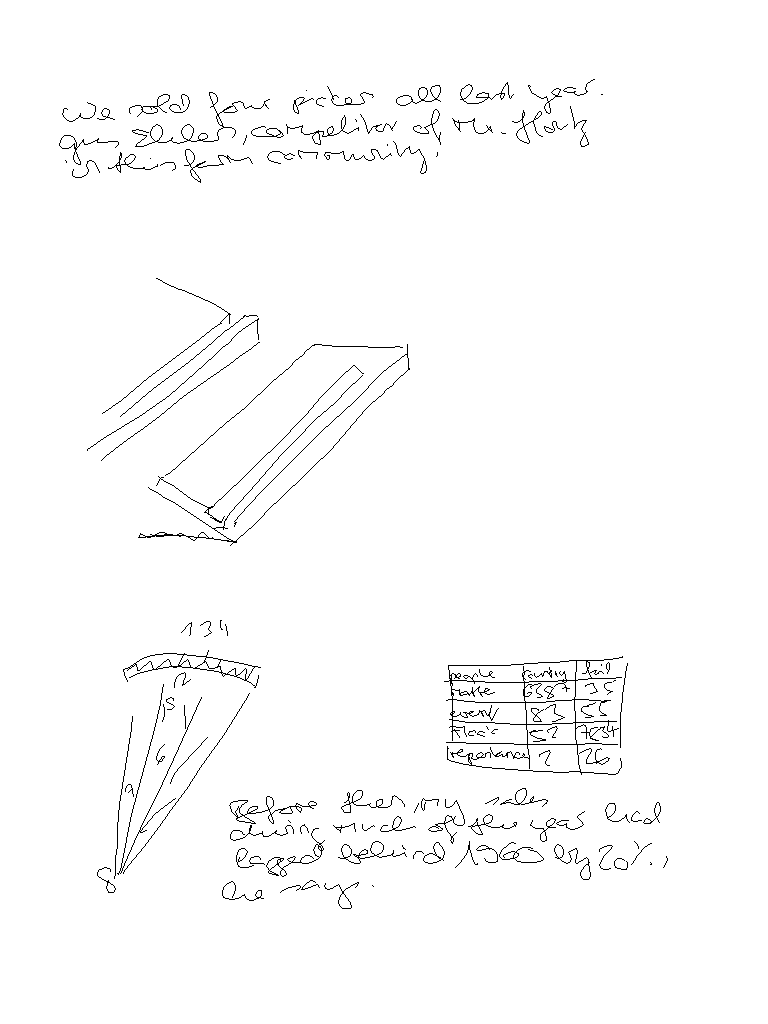 We sold four picker all last year.
gus Ehlers, competitor of Mr. Hortz
in this farm community.
134
2
5
6
9
8
people country fail
matter 6387 35
event 83 55
Magic 52 7634
repentance 2 26
Before then, my sales
during much of the year had
lagged behind 1960 by 20%.,
he says.